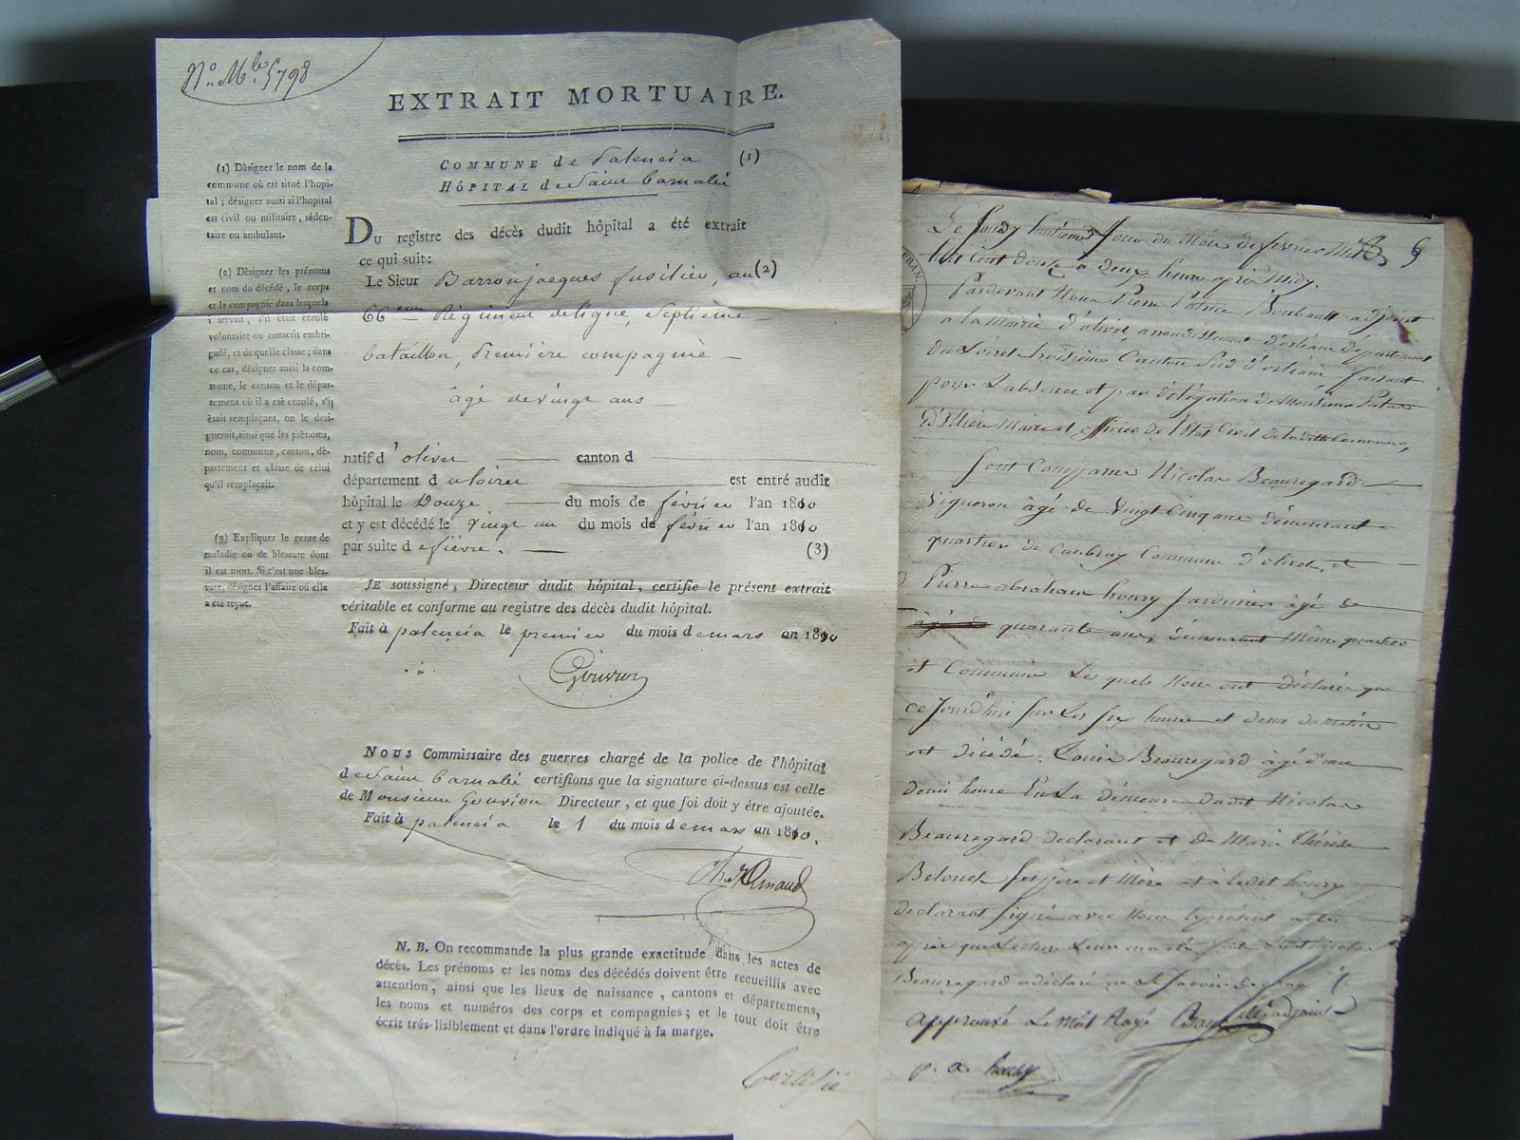 N.o M.le 5798
EXTRAIT MORTUAIRE.
COMMUNE de Palencia (1)
HÔPITAL de Saint Barnabé
DU registre des décès dudit hôpital a été extrait
ce qui suit:
Le Sieur Barron jacques fusilier, au (2)
66eme Régiment de ligne, Septième
bataillon, Première compagnie
âgé de vingt ans
natif d'olivet canton d
département du loiret est entré audit
hôpital le Douze du mois de février l'an 1810
et y est décédé le vingt un du mois de février l'an 1810
par suite de fièvre. (3)
JE soussigné, Directeur dudit hôpital, certifie le présent extrait
véritable et conforme au registre des décès dudit hôpital.
Fait à palencia le premier du mois de mars an 1810
Gouvion
NOUS Commissaire des guerres chargé de la police de l'hôpital
de Saint Barnabé certifions que la signature ci-dessus est celle
de Monsieur Gouvion Directeur, et que foi doit y être ajoutée.
Fait à palencia le 1 du mois de mars an 1810.
Arnaud
N. B. On recommande la plus grande exactitude dans les actes de
décès. Les prénoms et les noms des décédés doivent être recueillis avec
attention, ainsi que les lieux de naissance, cantons et départemens,
les noms et numéros des corps et compagnies; et le tout doit être
écrit très-lisiblement et dans l'ordre indiqué à la marge.
Certifié
(1) Désigner le nom de la
commune où est situé l'hopi-
tal; désigner aussi si l'hopital
est civil ou militaire, séden-
taire ou ambulant.
(2) Désigner les prénoms
et nom du décédé, le corps
et la compagnie dans lesquels
il servait, s'il était enrôlé
volontaire ou conscrit embri-
gadé, et de quelle classe; dans
ce cas, désigner aussi la com-
mune, le canton et le dépar-
tement où il a été enrôlé, s'il
était remplaçant, on le dési-
gnerait, ainsi que les prénoms,
nom, commune, canton, dé-
partement et classe de celui
qu'il remplaçait.
(3) Expliquer le genre de
maladie ou de blessure dont
il est mort. Si c'est une bles-
sure, désigner l'affaire où elle
a été reçue.
Le Jeudy huitième Jour du Mois de février Mil
huit Cent à Deux heures après Midy.
Pardevant Nous Pierre adjoint
a la Mairie d'olivet, arrondissement d'orléans Département
du Loiret troisième Canton Sud d'orléans, faisant
pour L'absence et par délégation de Monsieur
Maire et officier de l'Etat Civil de laditte Commune,
Sont Comparus Nicolas Beauregard
Vigneron âgé de Vingt Cinq ans demeurant
quartier de Caubray Commune d'olivet, et
Pierre abraham houry Jardinier âgé de
quarante ans, demeurant Même quartier
et Commune Lesquels Nous ont Déclarés que
ce Jourd'hui Sur Les Six heures et demie du matin
est décédé Louis Beauregard âgé d'une
demi heure En La demeure dudit Nicolas
Beauregard declarant et de Marie Thérèse
Belouet Ses père et Mère et à ledit houry
declarant Signé avec Nous le présent acte
après que Lecture Leur en a été faite
Beauregard a déclaré ne Savoir Signer
approuvé Le Mot Rayé adjoint
p. a. houry